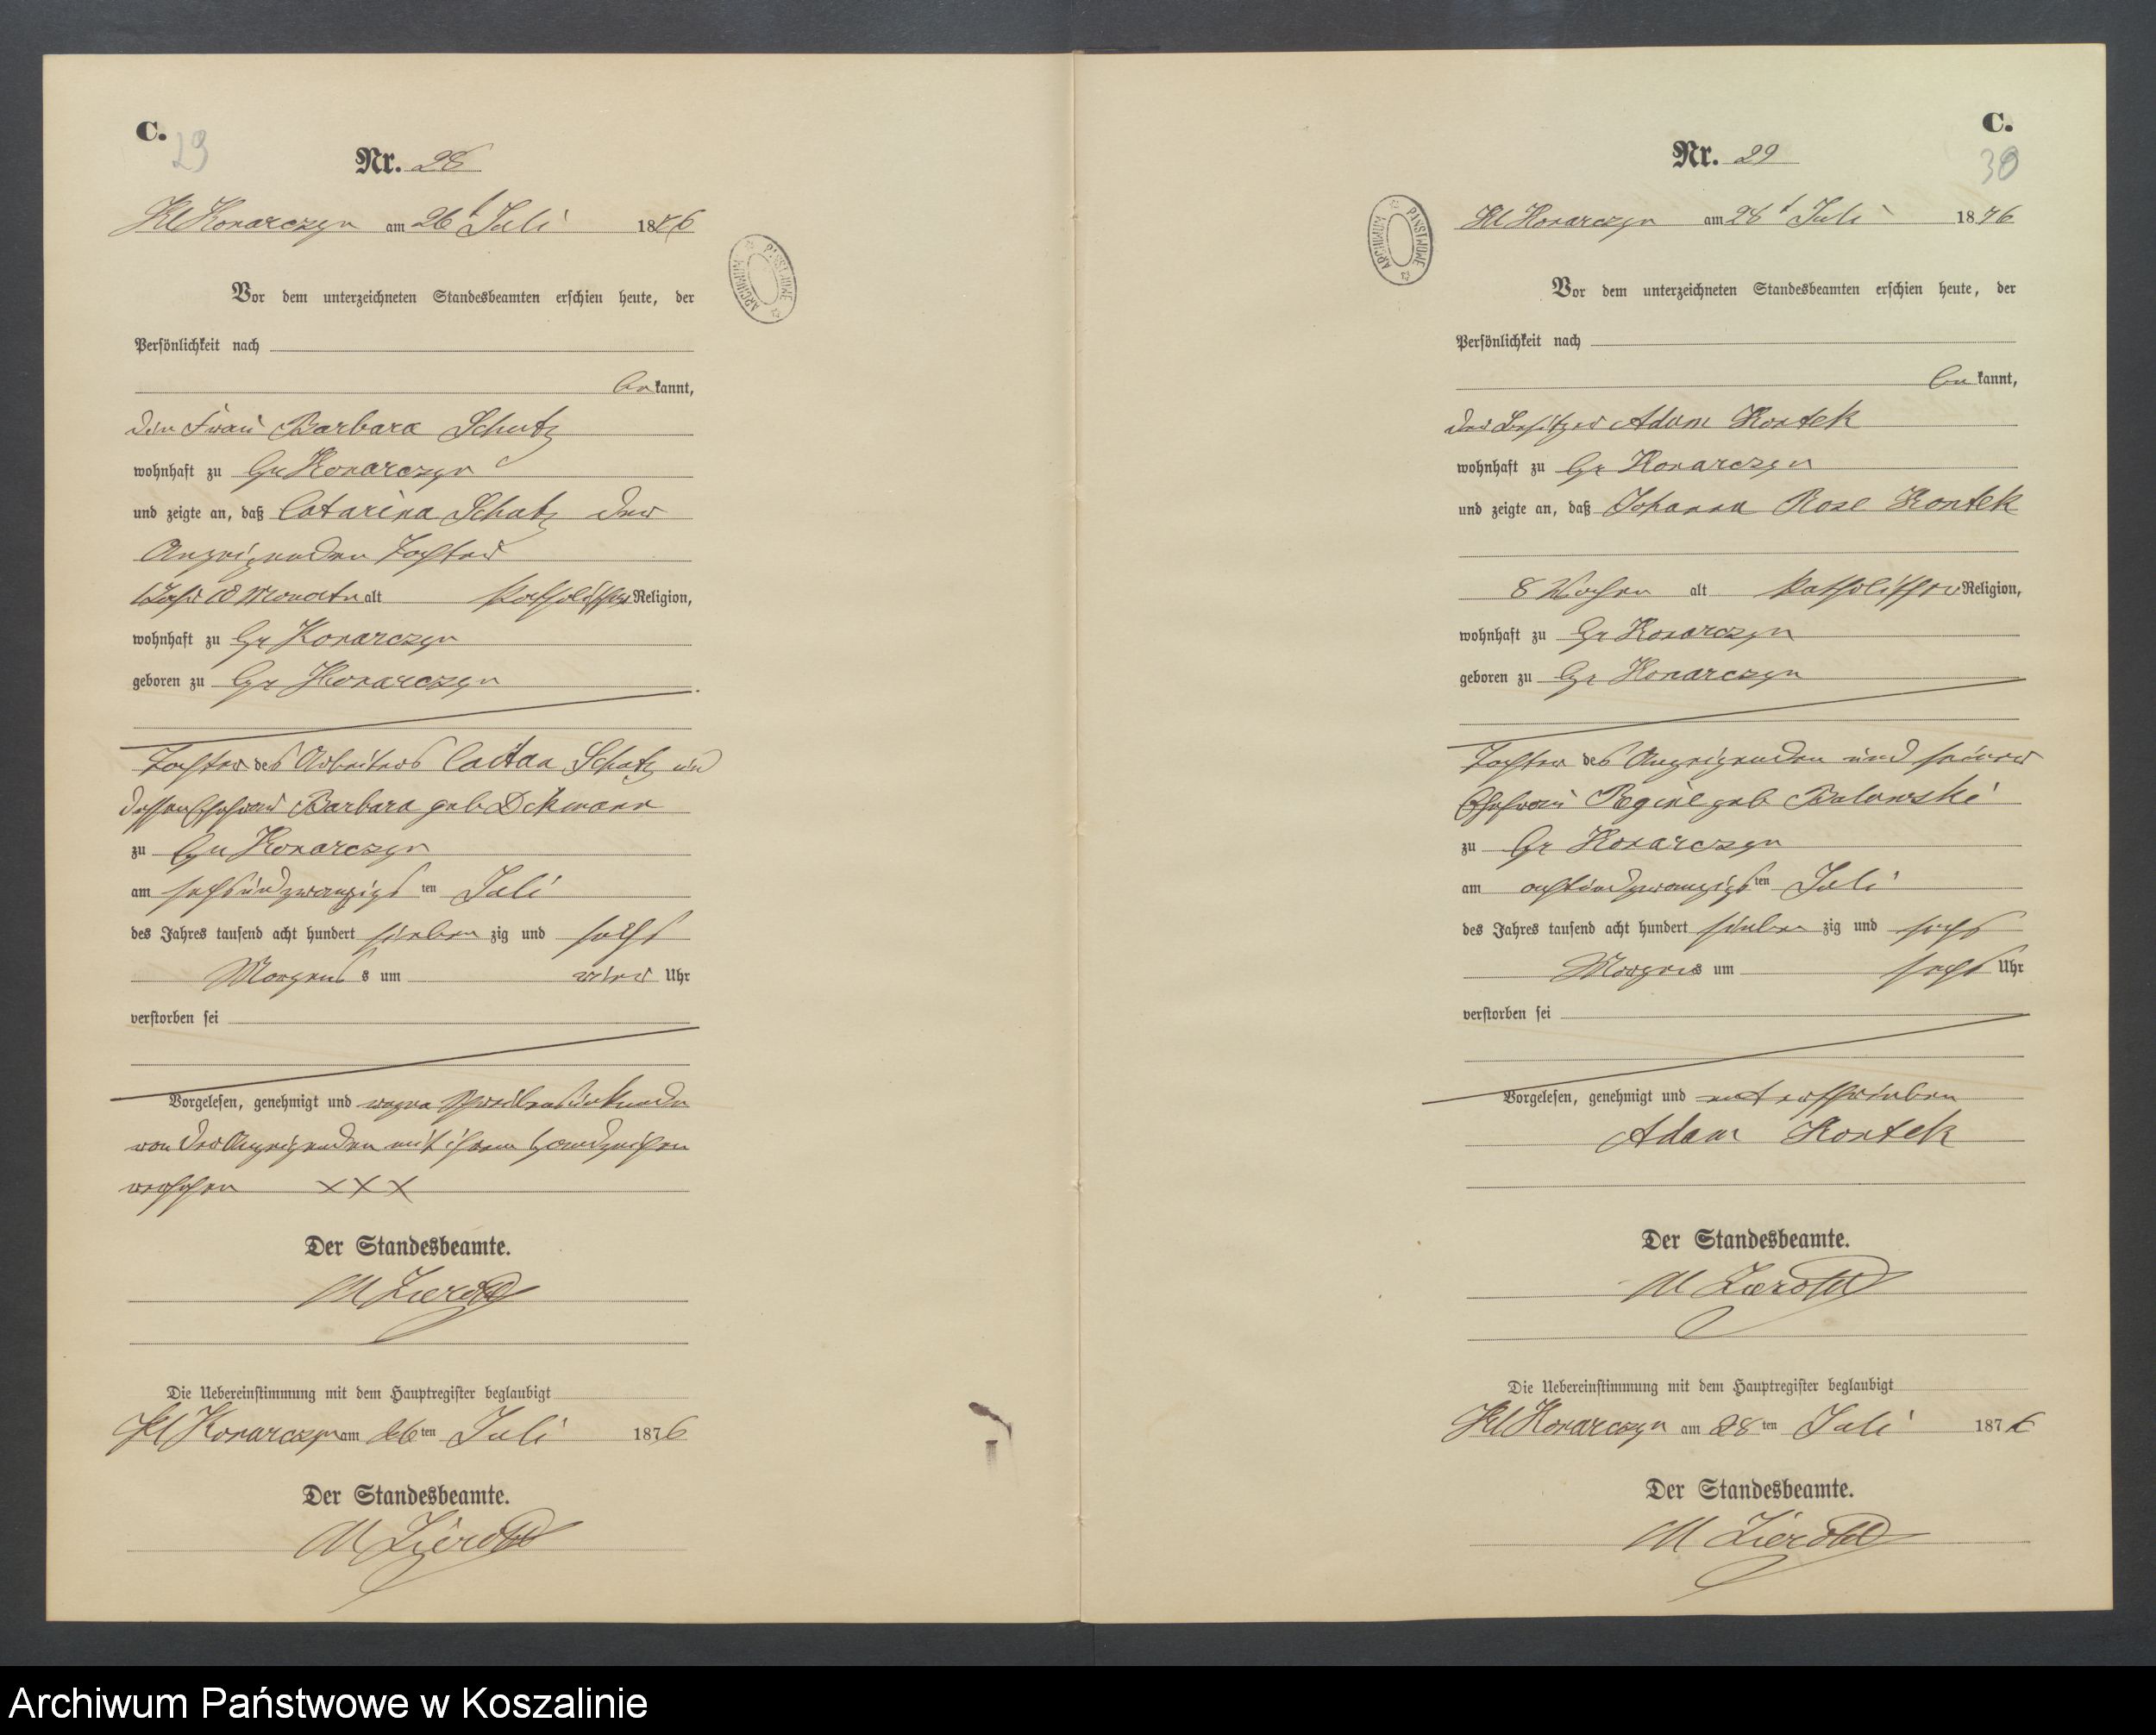 C.
29
Nr. 28
Kl Konarczyn am 26t Juli 1876
Vor dem unterzeichneten Standesbeamten erschien heute, der
Persönlichkeit nach
be kannt,
die Frau Barbara Schatz
wohnhaft zu Gr Konarczyn
und zeigte an, daß Catarina Schatz der
Anzeigenden Tochter
1 Jahr 10 Monate alt katholischer Religion,
wohnhaft zu Gr Konarczyn
geboren zu Gr Konarczyn
Tochter des Arbeiters Schatz und
dessen Ehefrau Barbara geb
zu Gr Konarczyn
am sechsundzwanzigs ten Juli
des Jahres tausend acht hundert sieben zig und sechs
Morgens s um vier Uhr
verstorben sei
Vorgelesen, genehmigt und wegen Schreibensunkunde
von der Anzeigenden mit ihrem Handzeichen
versehen XXX
Der Standesbeamte.
M Zierold
Die Uebereinstimmung mit dem Hauptregister beglaubigt
Kl Konarczyn am 26 ten Juli 1876
Der Standesbeamte.
M Zierold
ARCHIWUM PAŃSTWOWE
C.
30
Nr. 29
Kl Konarczyn am 28t Juli 1876
Vor dem unterzeichneten Standesbeamten erschien heute, der
Persönlichkeit nach
be kannt,
der Besitzer Adam Kontek
wohnhaft zu Gr Konarczyn
und zeigte an, daß Johanna Rose Kontek
8 Wochen alt katholischer Religion,
wohnhaft zu Gr Konarczyn
geboren zu Gr Konarczyn
Tochter des Anzeigenden und seiner
Ehefrau Regine geb
zu Gr Konarczyn
am achtundzwanzigs ten Juli
des Jahres tausend acht hundert sieben zig und sechs
Morgens um sechs Uhr
verstorben sei
Vorgelesen, genehmigt und unterschrieben
Adam Kontek
Der Standesbeamte.
M Zierold
Die Uebereinstimmung mit dem Hauptregister beglaubigt
Kl Konarczyn am 28 ten Juli 1876
Der Standesbeamte.
M Zierold
ARCHIWUM PAŃSTWOWE
Archiwum Państwowe w Koszalinie